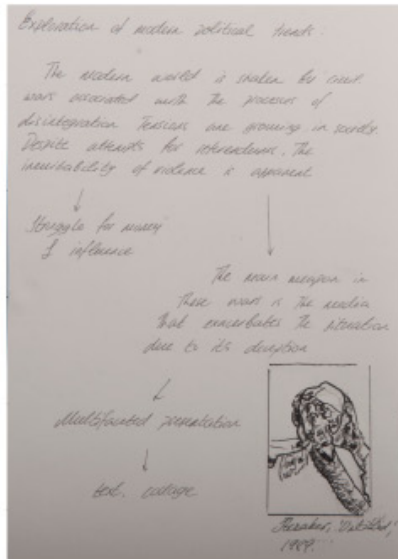 Exploration of modern political trends:
The modern world is shaken by civil
wars associated with the processes of
disintegration Tensions are growing in society.
Despite attempts for referendums. The
inevitability of violence is apparent
Struggle for money
& influence
The main weapon in
These wars is the media
that exacerbates the situation
due to its deception
Multifaceted presentation
text, collage
1989.